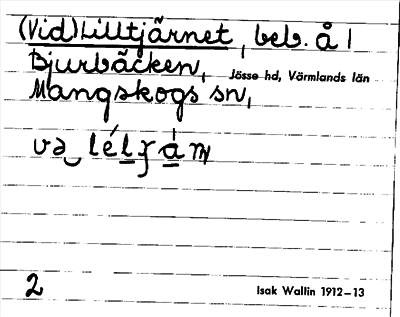 (Vid) Lilltjärnet, beb. å 1
Bjurbäcken, Jösse hd, Värmlands län
Mangskogs sn,
2 Isak Wallin 1912–13